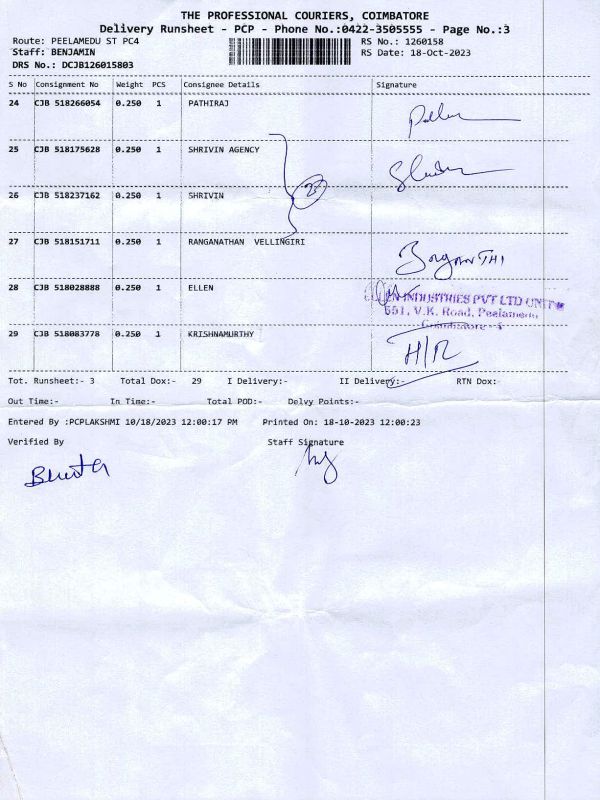 THE PROFESSIONAL COURIERS, COIMBATORE
Delivery Runsheet - PCP - Phone No.:0422-3505555 - Page No.:3
Route: PEELAMEDU ST PC4 RS No.: 1260158
Staff: BENJAMIN RS Date: 18-Oct-2023
DRS No.: DCJB126015803
S No Consignment No Weight PCS Consignee Details Signature
24 CJB 518266054 0.250 1 PATHIRAJ
25 CJB 518175628 0.250 1 SHRIVIN AGENCY
26 CJB 518237162 0.250 1 SHRIVIN
27 CJB 518151711 0.250 1 RANGANATHAN VELLINGIRI
28 CJB 518028888 0.250 1 ELLEN
INDUSTRIES PVT LTD UNIT
651, V.K. Road, Peelamedu,
Coimbatore - 4
29 CJB 518083778 0.250 1 KRISHNAMURTHY H/R
Tot. Runsheet:- 3 Total Dox:- 29 I Delivery:- II Delivery:- RTN Dox:-
Out Time:- In Time:- Total POD:- Delvy Points:-
Entered By :PCPLAKSHMI 10/18/2023 12:00:17 PM Printed On: 18-10-2023 12:00:23
Verified By Staff Signature